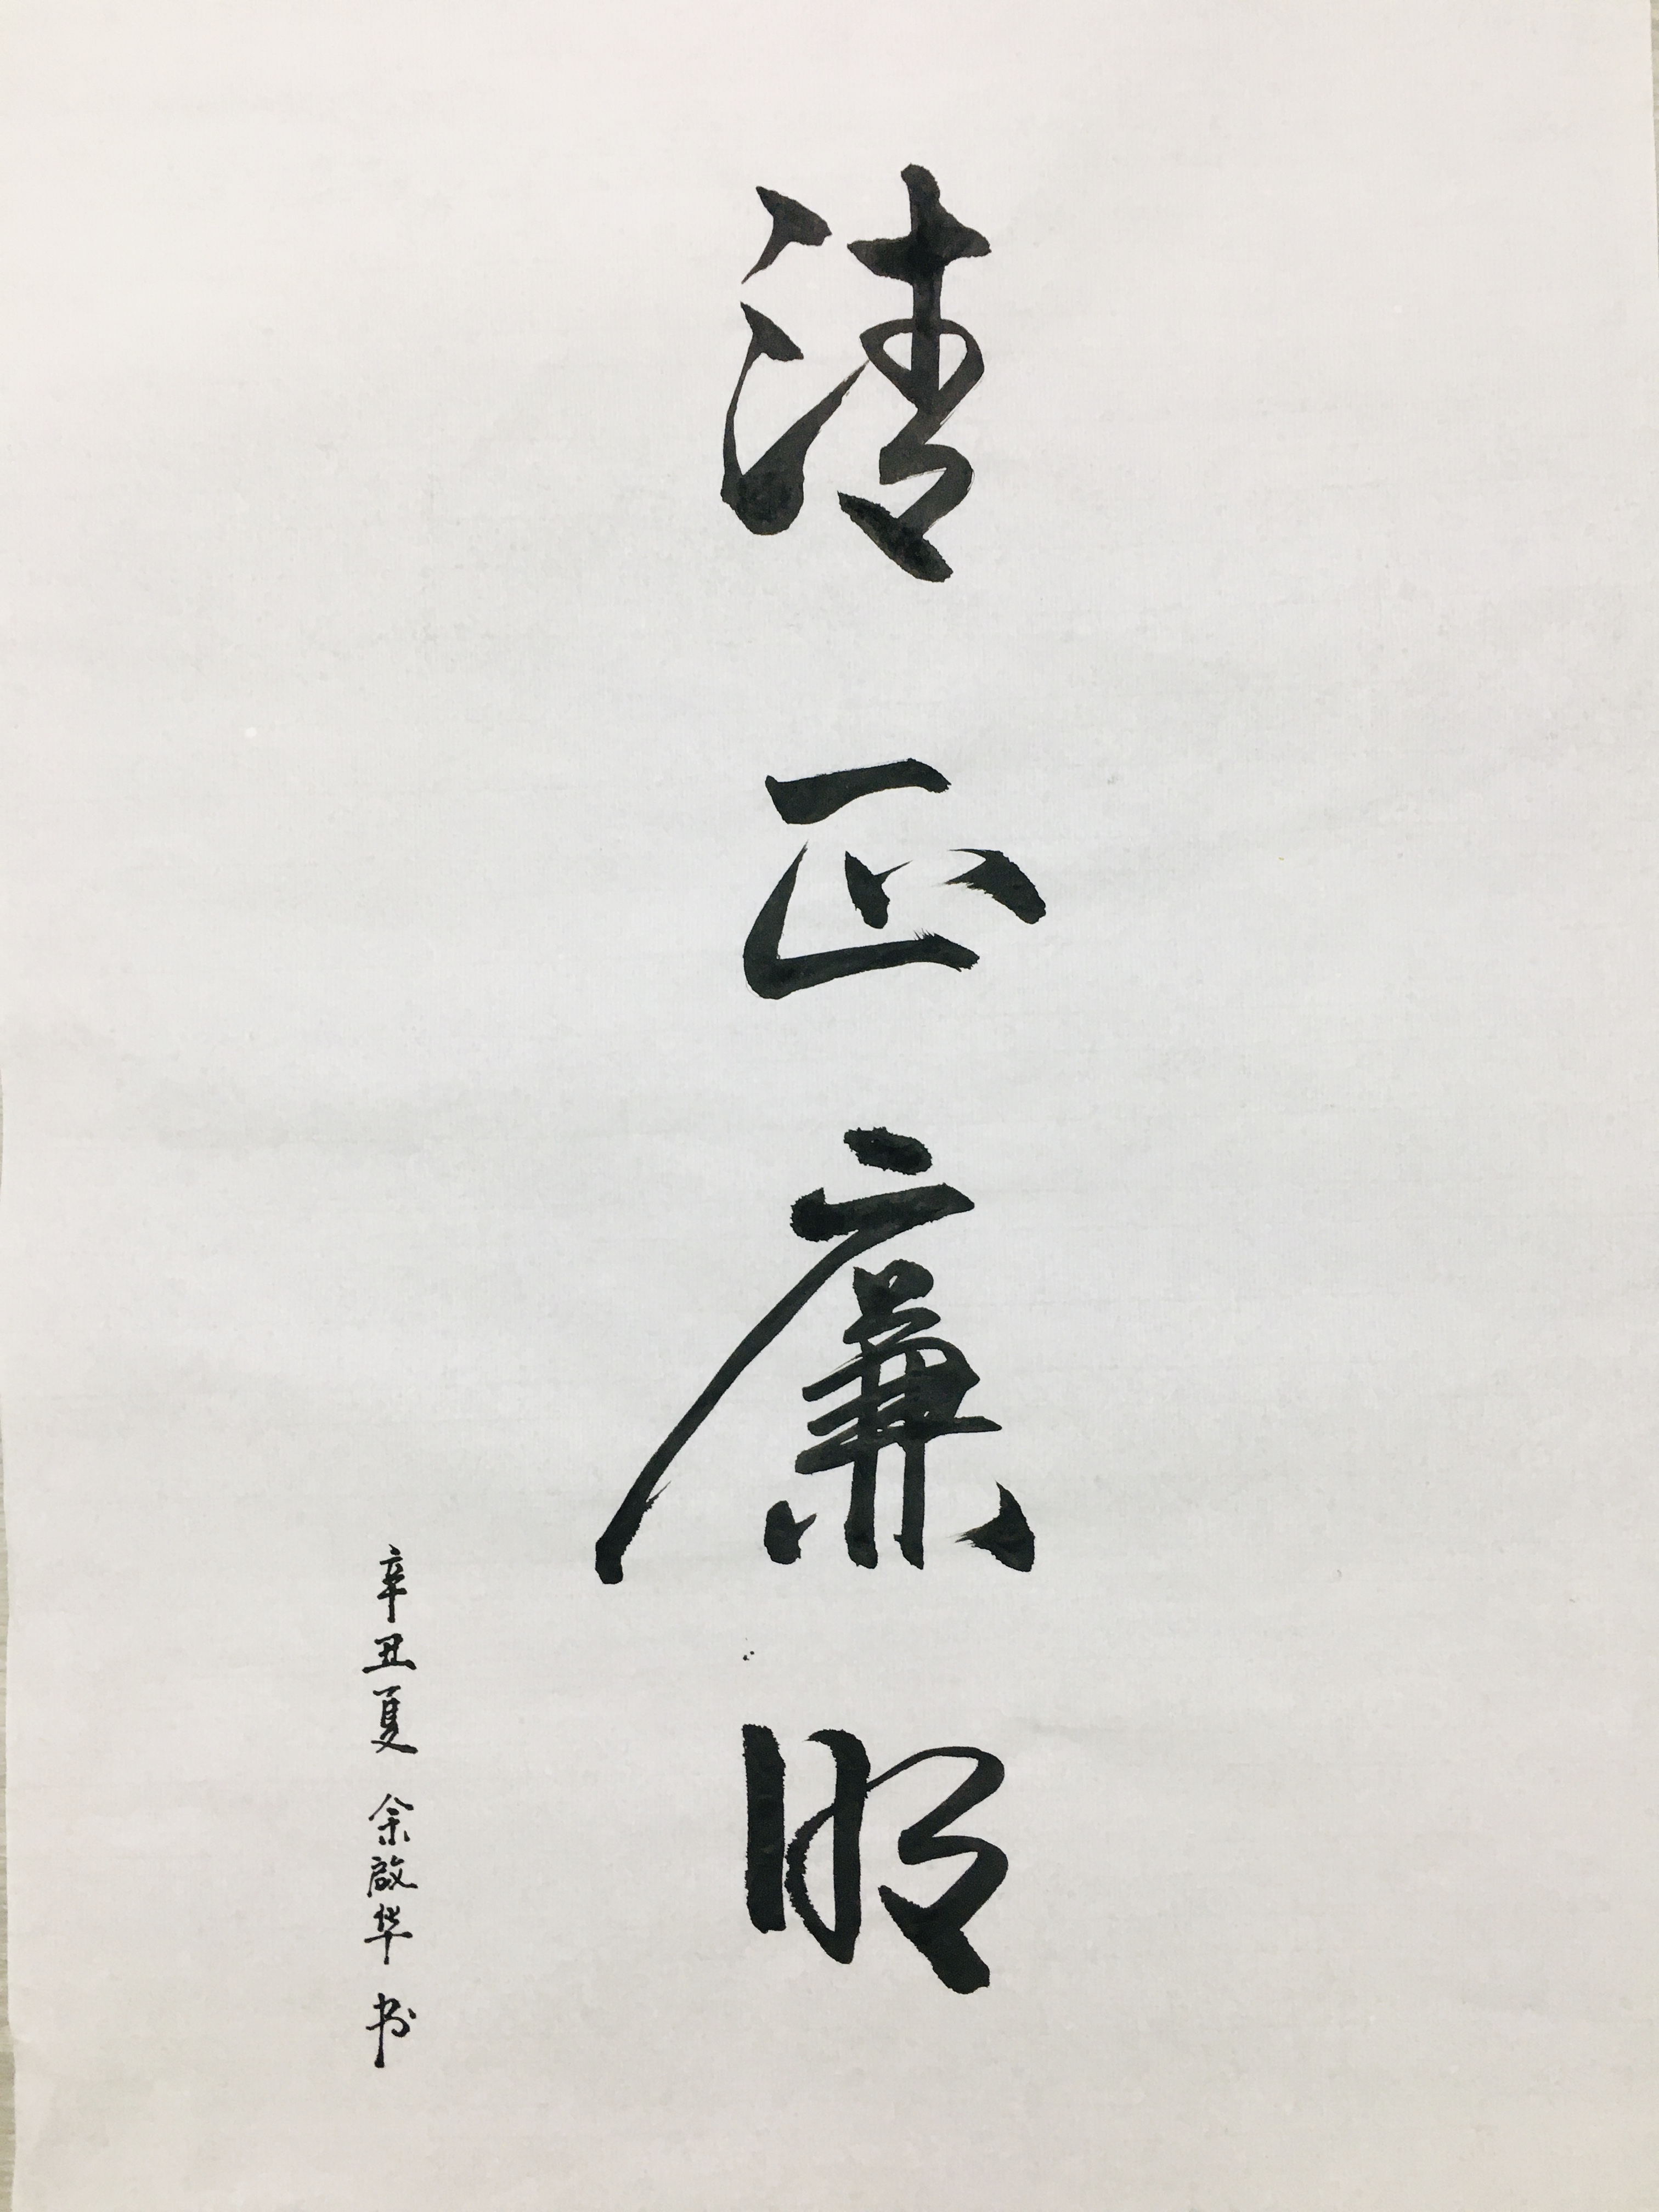 清正廉明
辛丑夏 余啟华书